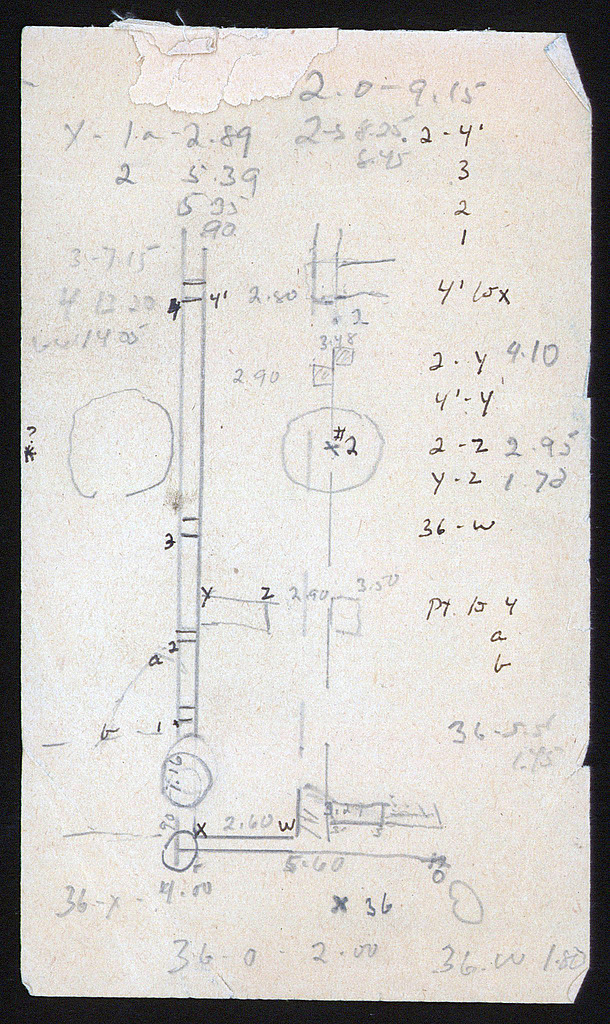 2.0 - 9.15
Y - 1a - 2.89
2-3 8.25
2 - 4'
2 5.39
8.45
3
5 35
2
.90
1
3 - 7.15
4 12.20
14.05
4 4'
2.80
4' to x
2
3.48
2 - Y 4.10
2.90
4' - Y'
?
*
#2
2 - Z 2.95
Y - Z 1.72
3
36 - W
Y Z
2.90 3.50
Pt. to 4
2
a
a
b
b - 1
36 - 5.5
1.75
1.16
.90
X 2.60 W
5.60
O
4.00
36 - X -
x 36
36 - 0 - 2.00
36. W 1.80